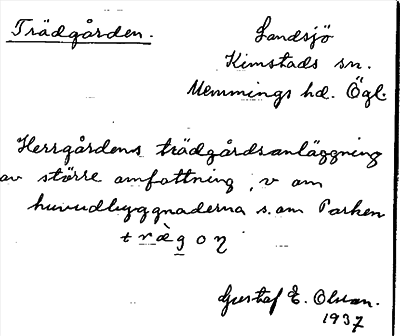 Trädgården.
Landsjö
Kimstads sn.
Memmings hd. Ögl.
Herrgårdens trädgårdsanläggning
av större omfattning, v om
huvudbyggnaderna s. om Parken
trægoƞ
Gustaf E. Olsson.
1937